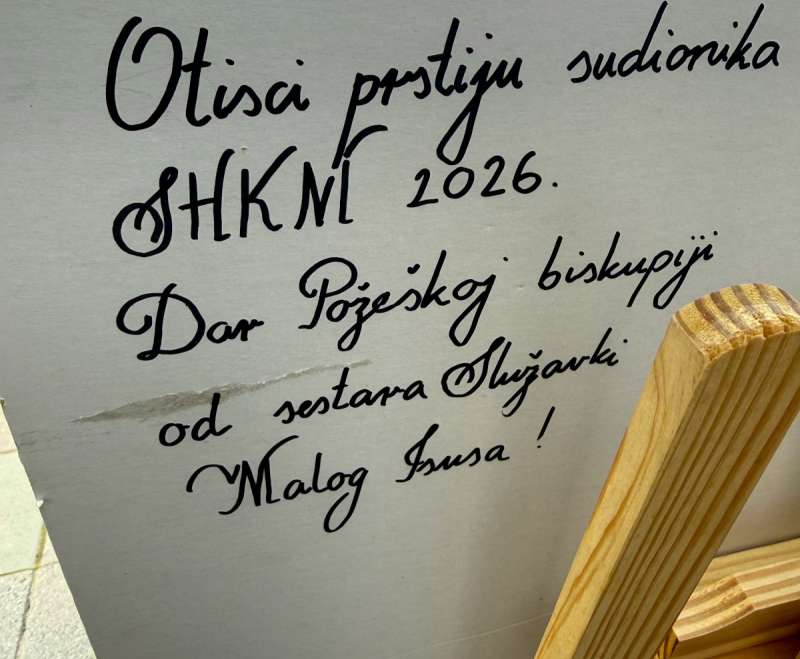 Otisci prstiju sudionika
SHKM 2026.
Dar Požeškoj biskupiji
od sestara Služavki
Malog Isusa!